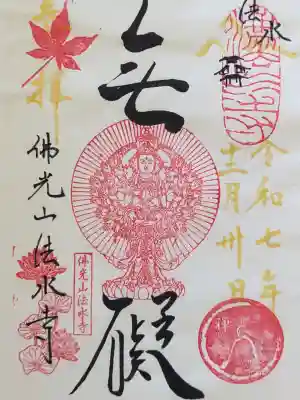 法水
令和七年
十二月卅日
無
礙
奉拝
佛光山法水寺
佛光山法水寺